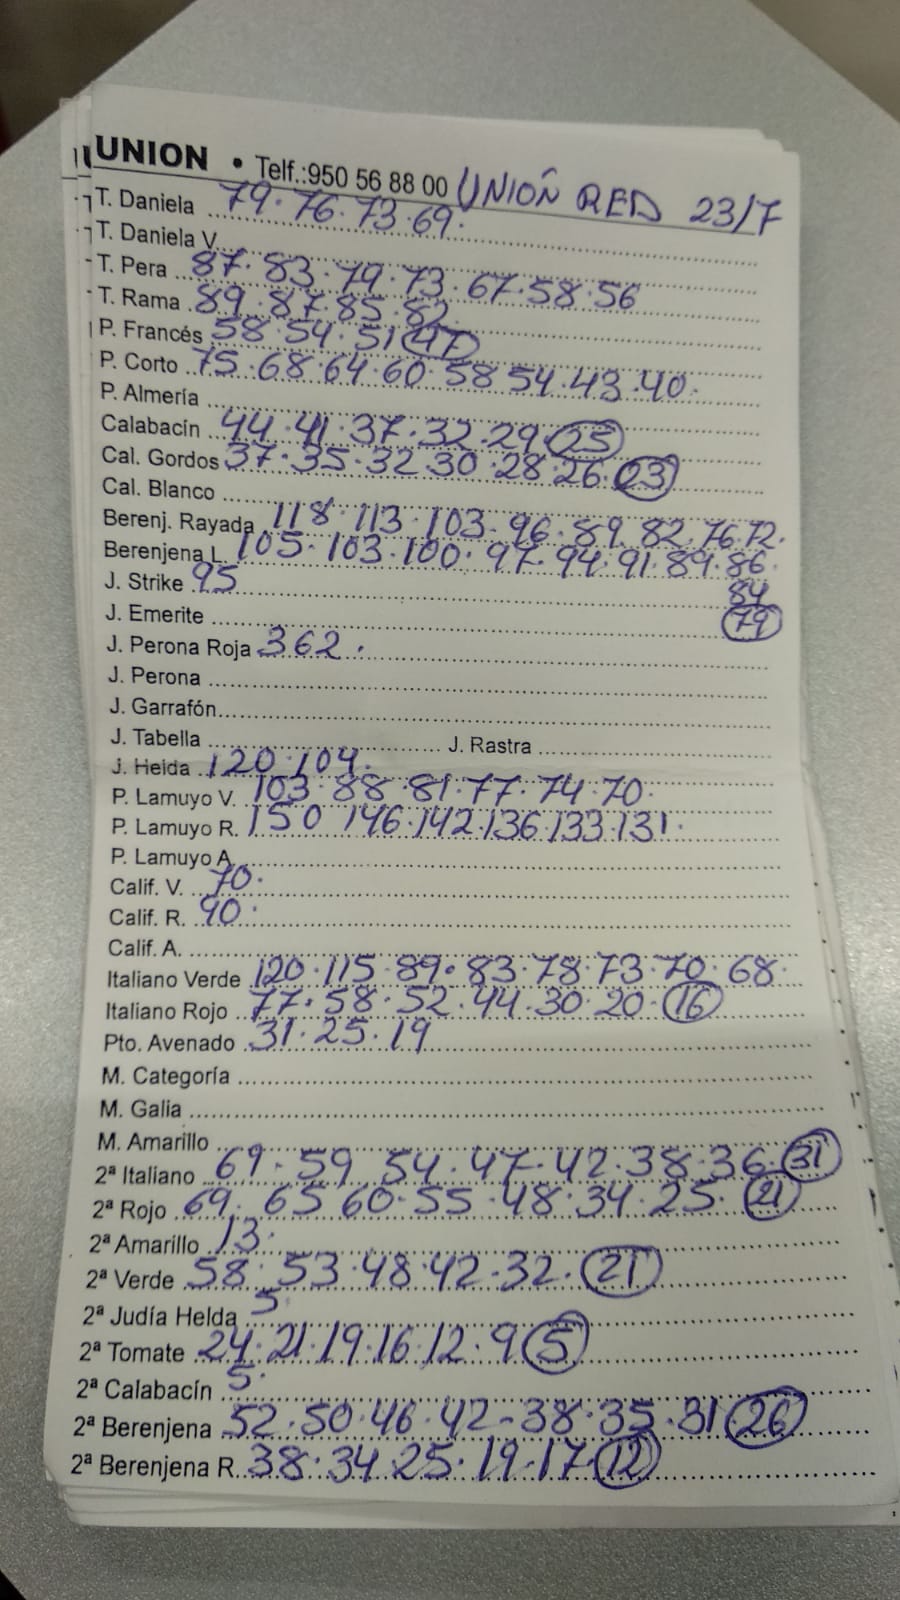 UNION • Telf.:950 56 88 00 UNIÓN RED 23/7
T. Daniela 79.76.73.69.
T. Daniela V.
T. Pera 87.83.79.73.67.58.56
T. Rama 89.87.85.82
P. Francés 58.54.51 47
P. Corto 75.68.64.60.58 54.43.40.
P. Almería
Calabacín 44.41.37.32.29 25
Cal. Gordos 37.35.32 30.28.26. 23
Cal. Blanco
Berenj. Rayada 118.113.103.96.89.82.76.72.
Berenjena L. 105.103.100.97.94.91.89.86.
84
79
J. Strike 95
J. Emerite
J. Perona Roja 362.
J. Perona
J. Garrafón
J. Tabella J. Rastra
J. Helda 120.104.
P. Lamuyo V. 103.88.81.77.74.70.
P. Lamuyo R. 150 146.142.136.133.131.
P. Lamuyo A.
Calif. V. 70.
Calif. R. 90.
Calif. A.
Italiano Verde 120.115.89.83.78.73.70.68.
Italiano Rojo 77.58.52.44.30.20. 16
Pto. Avenado 31.25.19
M. Categoría
M. Galia
M. Amarillo
2ª Italiano 69.59 54.47.42.38.36. 31
2ª Rojo 69. 65 60.55.48.34.25. 21
2ª Amarillo 13.
2ª Verde 58.53.48.42.32. 21
2ª Judía Helda 5
2ª Tomate 24.21.19.16.12.9 5
2ª Calabacín 5.
2ª Berenjena 52.50.46.42-38.35.31 26
2ª Berenjena R. 38.34.25.19.17. 12